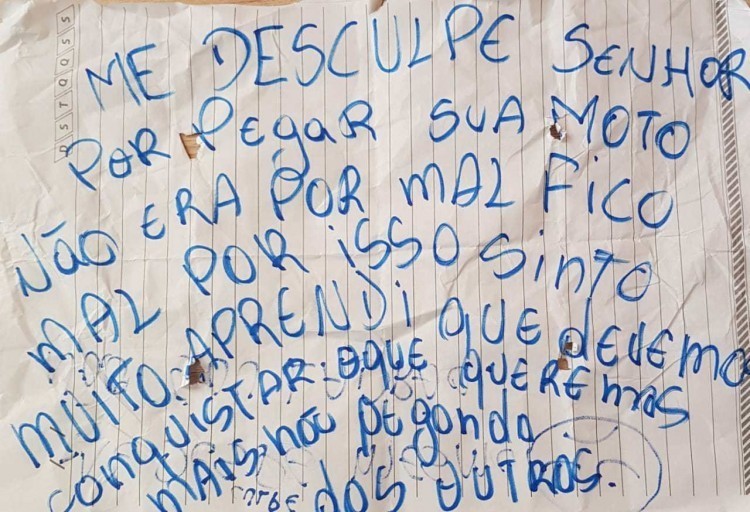 D S T Q Q S S
ME DESCULPE SENHOR
POR PEgaR SUA MOTO
NÃO ERA POR MAL FICO
MAL POR iSSO SinTO
MUITO APRENDi QUE dEVEMO
conquisTAR OQUE QUEREmos
MAIS não pegando
dOS OUTROS.